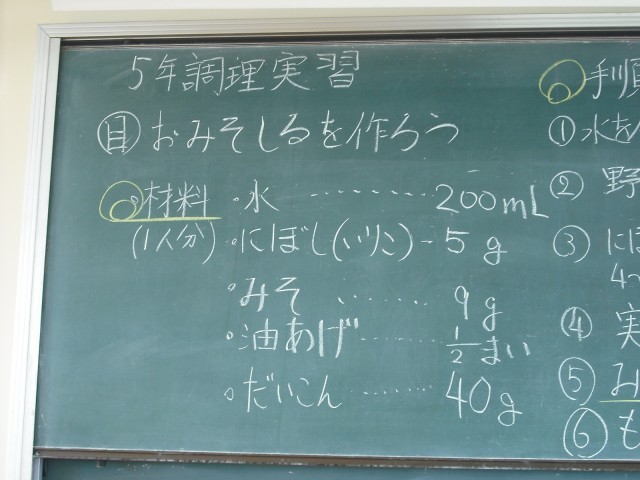 5年調理実習
目 おみそしるを作ろう
材料 ・水 ‥‥‥‥ 200mL
(1人分) ・にぼし(いりこ) - 5g
・みそ ‥‥‥ 9g
・油あげ ‥‥‥ 1/2まい
・だいこん ‥‥‥ 40g
手順
① 水を
② 野
③ に
④ 実
⑤ み
⑥ も